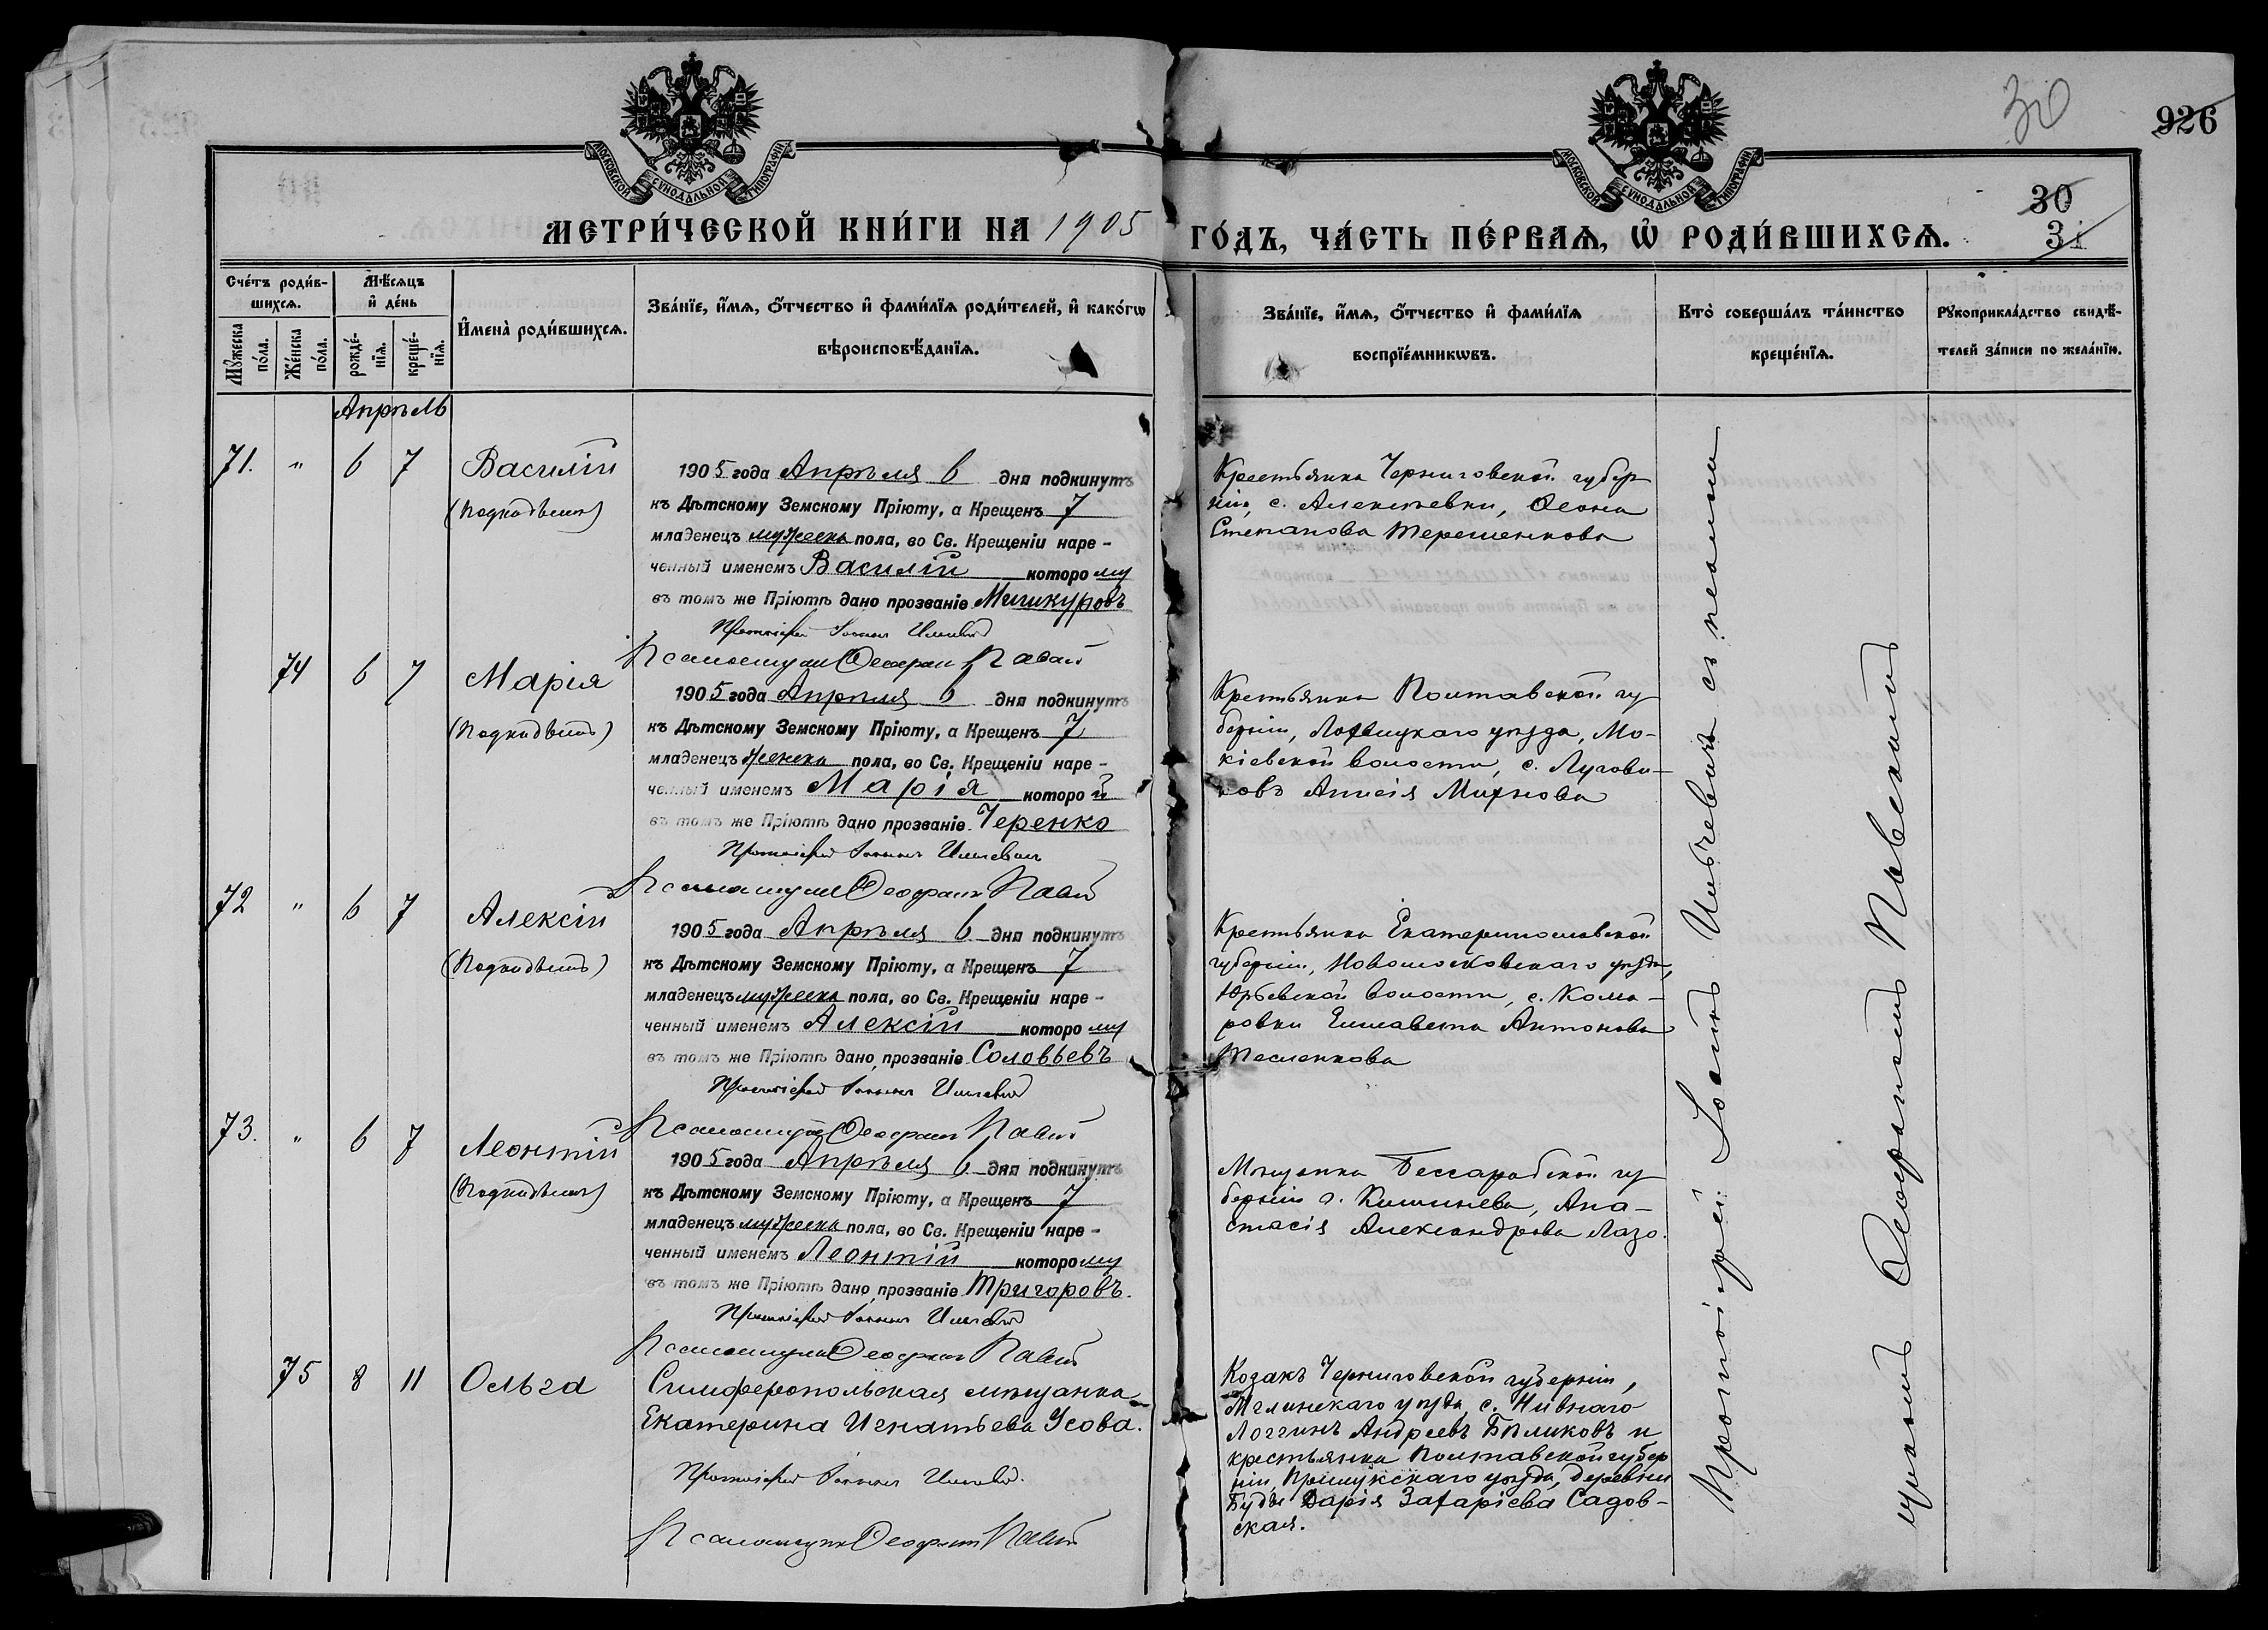 30
926
МОСКОВСКОЙ СУНОДАЛЬНОЙ ТИПОГРАФІИ
МОСКОВСКОЙ СУНОДАЛЬНОЙ ТИПОГРАФІИ
30
31
МЕТРИ́ЧЕСКОЙ КНИ́ГИ НА 1905 ГО́ДЪ, ЧА́СТЬ ПЕ́РВАѦ, Ѡ҆ РОДИ́ВШИХСѦ.
Сче́тъ роди́в-
шихсѧ.
Мѣ́сѧцъ
и҆ де́нь
Му́жеска
по́ла.
Же́нска
по́ла.
рожде́-
нїѧ.
креще́-
нїѧ.
И҆мена̀ роди́вшихсѧ.
Зва́нїе, и҆́мѧ, ѻ҆́тчество и҆ фами́лїѧ роди́телей, и҆ како́гѡ
вѣроисповѣ́данїѧ.
Зва́нїе, и҆́мѧ, ѻ҆́тчество и҆ фами́лїѧ
воспрїе́мникѡвъ.
Кто̀ соверша́лъ та́инство
креще́нїѧ.
Рꙋкоприкла́дство свидѣ́-
телей за́писи по жела́нїю.
Апрѣль
71. " 6 7 Василій
(Подкидышъ)
1905 года Апрѣля 6 дня подкинутъ
къ Дѣтскому Земскому Пріюту, а Крещенъ 7
младенецъ мужеска пола, во Св. Крещеніи наре-
ченный именемъ Василій которому
въ томъ же Пріютѣ дано прозваніе
Протоіерей Іоаннъ
Псаломщикъ Ѳеофанъ
Крестьянка Черниговской губер
ніи, с. Алексѣевки, Ѳеона
Степанова Терешенкова
74 6 7 Марія
(Подкидышъ)
1905 года Апрѣля 6 дня подкинутъ
къ Дѣтскому Земскому Пріюту, а Крещенъ 7
младенецъ женска пола, во Св. Крещеніи наре-
ченный именемъ Марія которой
въ томъ же Пріютѣ дано прозваніе Черенко
Протоіерей Іоаннъ
Псаломщикъ Ѳеофанъ
Крестьянка Полтавской гу
берніи, Лохвицкаго уѣзда, Мо-
кіевской волости, с. Лугови-
ковъ Анисія
72 " 6 7 Алексій
(Подкидышъ)
1905 года Апрѣля 6 дня подкинутъ
къ Дѣтскому Земскому Пріюту, а Крещенъ 7
младенецъ мужеска пола, во Св. Крещеніи наре-
ченный именемъ Алексій которому
въ томъ же Пріютѣ дано прозваніе Соловьевъ
Протоіерей Іоаннъ
Псаломщикъ Ѳеофанъ
Крестьянка Екатеринославской
губерніи, Новомосковскаго уѣзда,
Юрьевской волости, с. Кома-
ровки Елисавета Антонова
Тесленкова
73. " 6 7 Леонтій
(Подкидышъ)
1905 года Апрѣля 6 дня подкинутъ
къ Дѣтскому Земскому Пріюту, а Крещенъ 7
младенецъ мужеска пола, во Св. Крещеніи наре-
ченный именемъ Леонтій которому
въ томъ же Пріютѣ дано прозваніе Тригоровъ.
Протоіерей Іоаннъ
Псаломщикъ Ѳеофанъ
Мѣщанка Бессарабской гу
берніи г. Кишинева, Ана-
стасія Александрова Лазо.
75 8 11 Ольга
Симферопольская мѣщанка
Екатерина Игнатьева Усова.
Протоіерей Іоаннъ
Псаломщикъ Ѳеофанъ
Козакъ Черниговской губерніи,
Мглинскаго уѣзда, с. Нивнаго
Логгинъ Андреевъ Бѣликовъ и
крестьянка Полтавской губер
ніи, Прилукскаго уѣзда, деревни
Буды Дарія Захаріева Садов-
ская.
Протоіерей Іоаннъ съ псалом
щикомъ Ѳеофаномъ